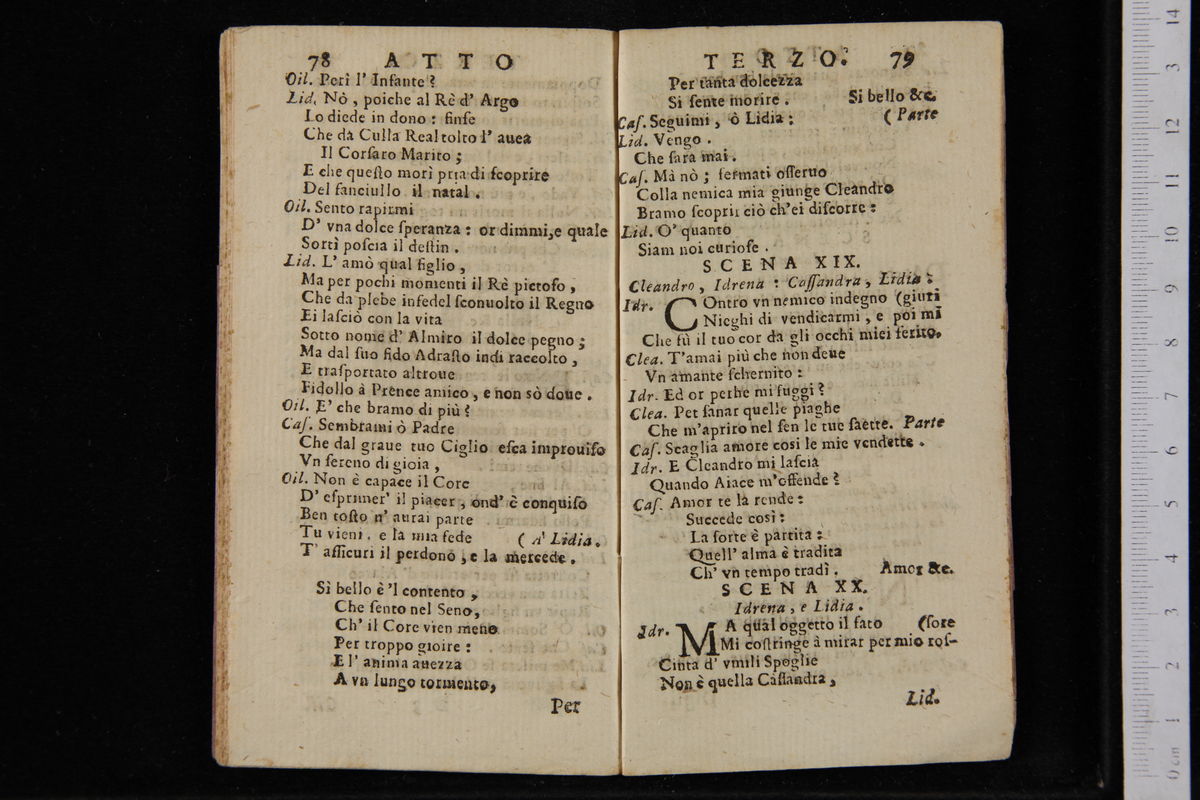 78 ATTO
Oil. Perì l' Infante?
Lid. Nò, poiche al Rè d' Argo
Lo diede in dono: finse
Che da Culla Real tolto l' auea
Il Corsaro Marito;
E che questo morì pria di scoprire
Del fanciullo il natal.
Oil. Sento rapirmi
D' vna dolce speranza: or dimmi, e quale
Sortì poscia il destin.
Lid. L' amò qual figlio,
Ma per pochi momenti il Rè pietoso,
Che da plebe infedel sconuolto il Regno
Ei lasciò con la vita
Sotto nome d' Almiro il dolce pegno;
Ma dal suo fido Adrasto indi raccolto,
E trasportato altroue
Fidollo à Prence amico, e non sò doue.
Oil. E' che bramo di più?
Cas. Sembrami ò Padre
Che dal graue tuo Ciglio esca improuiso
Vn sereno di gioia,
Oil. Non è capace il Core
D' esprimer' il piacer, ond' è conquiso
Ben tosto n' aurai parte
Tu vieni, e la mia fede (A' Lidia.
T' assicuri il perdono, e la mercede.
Sì bello è 'l contento,
Che sento nel Seno,
Ch' il Core vien meno
Per troppo gioire:
E l' anima auezza
A vn lungo tormento,
Per
TERZO. 79
Per tanta dolcezza
Si sente morire. Si bello &c.
Cas. Seguimi, ò Lidia; (Parte
Lid. Vengo.
Che sara mai.
Cas. Mà nò; fermati osseruo
Colla nemica mia giunge Cleandro
Bramo scoprir ciò ch'ei discorre:
Lid. O' quanto
Siam noi curiose.
SCENA XIX.
Cleandro, Idrena: Cassandra, Lidia:
Idr. COntro vn nemico indegno (giuri
Nieghi di vendicarmi, e poi mi
Che fù il tuo cor da gli occhi miei ferito.
Clea. T'amai più che non deue
Vn amante schernito:
Idr. Ed or perhe mi fuggi?
Clea. Pet sanar quelle piaghe
Che m'apriro nel sen le tue saette. Parte
Cas. Scaglia amore cosi le mie vendette.
Idr. E Cleandro mi lascia
Quando Aiace m'offende?
Cas. Amor te la rende:
Succede così:
La sorte è partita:
Quell' alma è tradita
Ch' vn tempo tradì. Amor &c.
SCENA XX.
Idrena, e Lidia.
Idr. MA qual oggetto il fato (sore
Mi costringe à mirar per mio ros-
Cinta d' vmili Spoglie
Non è quella Cassandra,
Lid.